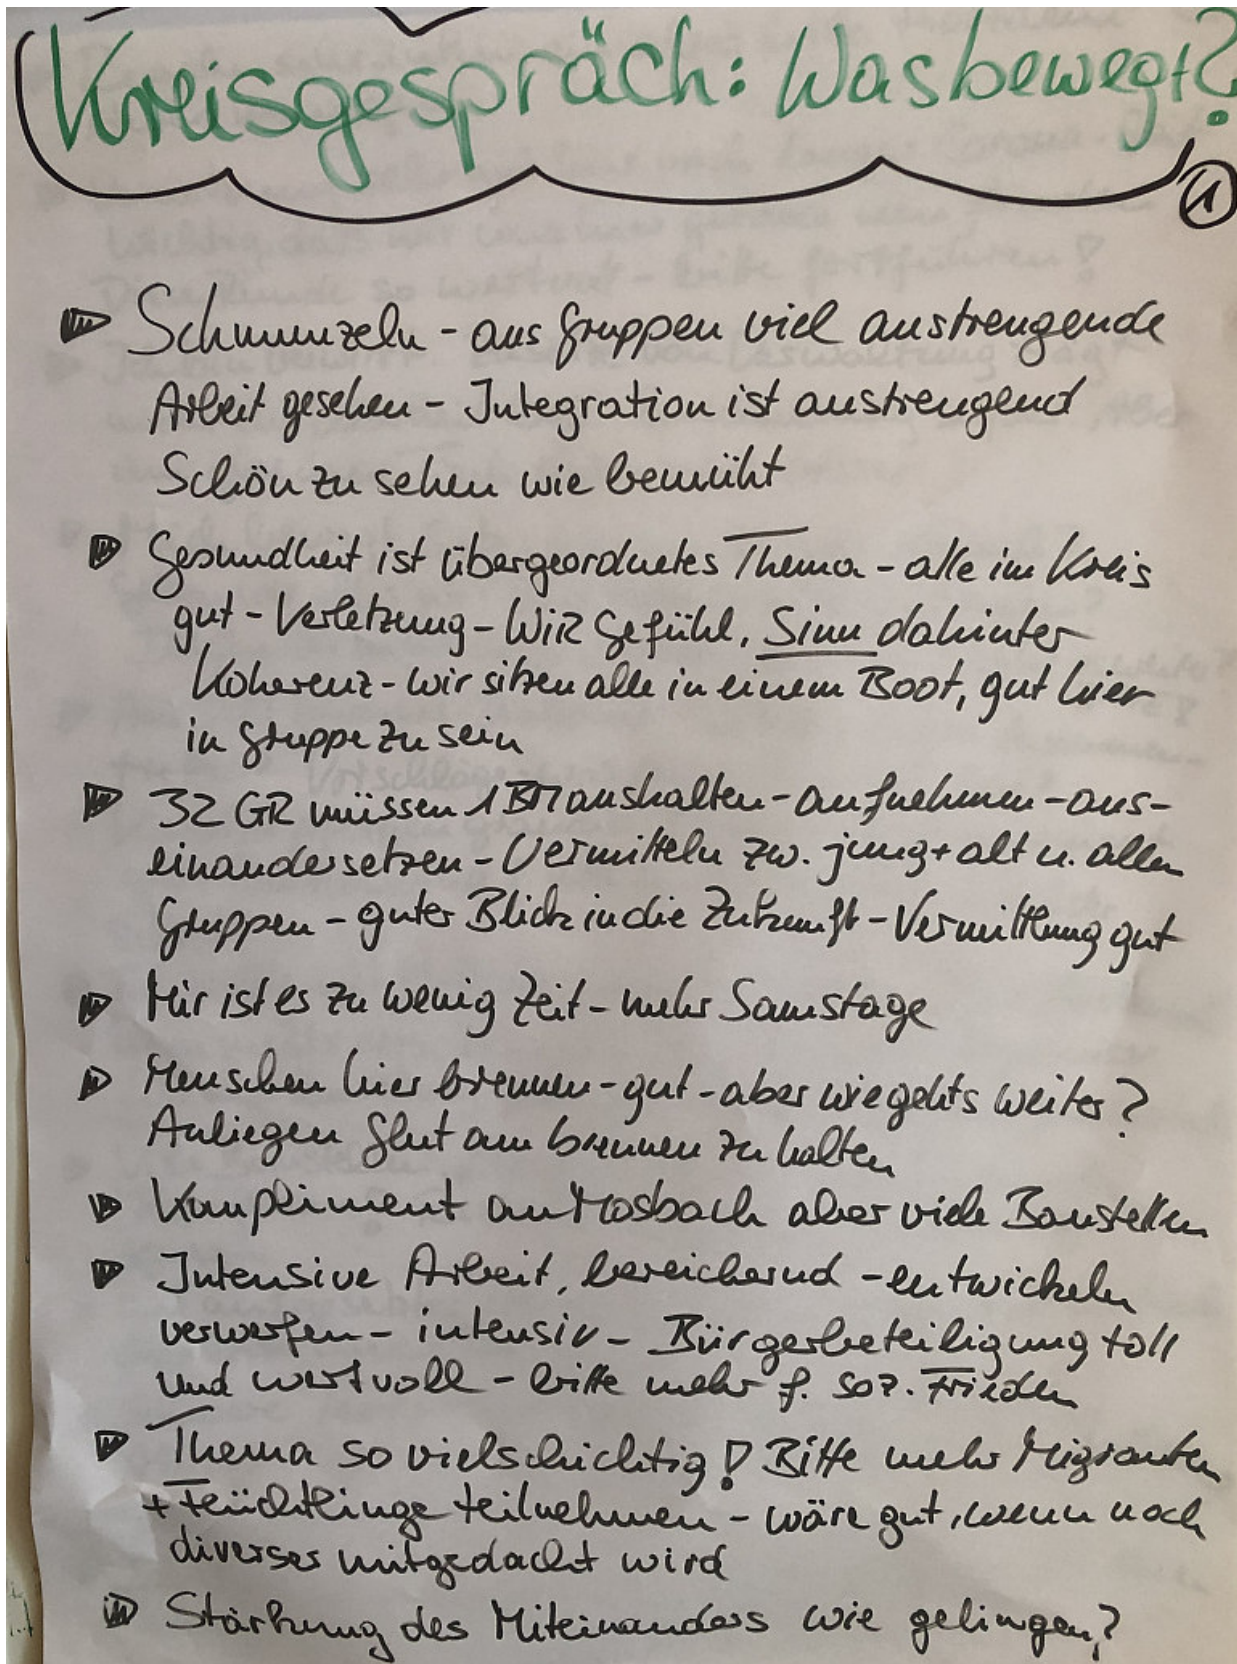 Kreisgespräch: Was bewegt?
1
Schmunzeln - aus Gruppen viel anstrengende
Arbeit gesehen - Integration ist anstrengend
Schön zu sehen wie bemüht
Gesundheit ist übergeordnetes Thema - alle im Kreis
gut - Verletzung - WIR Gefühl, Sinn dahinter
Kohärenz - wir sitzen alle in einem Boot, gut hier
in Gruppe zu sein
32 GR müssen 1 BM aushalten - aufnehmen - aus-
einandersetzen - Vermitteln zw. jung + alt u. allen
Gruppen - guter Blick in die Zukunft - Vermittlung gut
Mir ist es zu wenig Zeit - mehr Samstage
Menschen hier brennen - gut - aber wie gehts weiter?
Anliegen Glut am brennen zu halten
Kompliment an Mosbach aber viele Baustellen
Intensive Arbeit, bereichernd - entwickeln
verwerfen - intensiv - Bürgerbeteiligung toll
und wertvoll - bitte mehr f. soz. Frieden
Thema so vielschichtig! Bitte mehr Migranten
+ Flüchtlinge teilnehmen - wäre gut, wenn noch
diverser mitgedacht wird
Stärkung des Miteinanders wie gelingen?